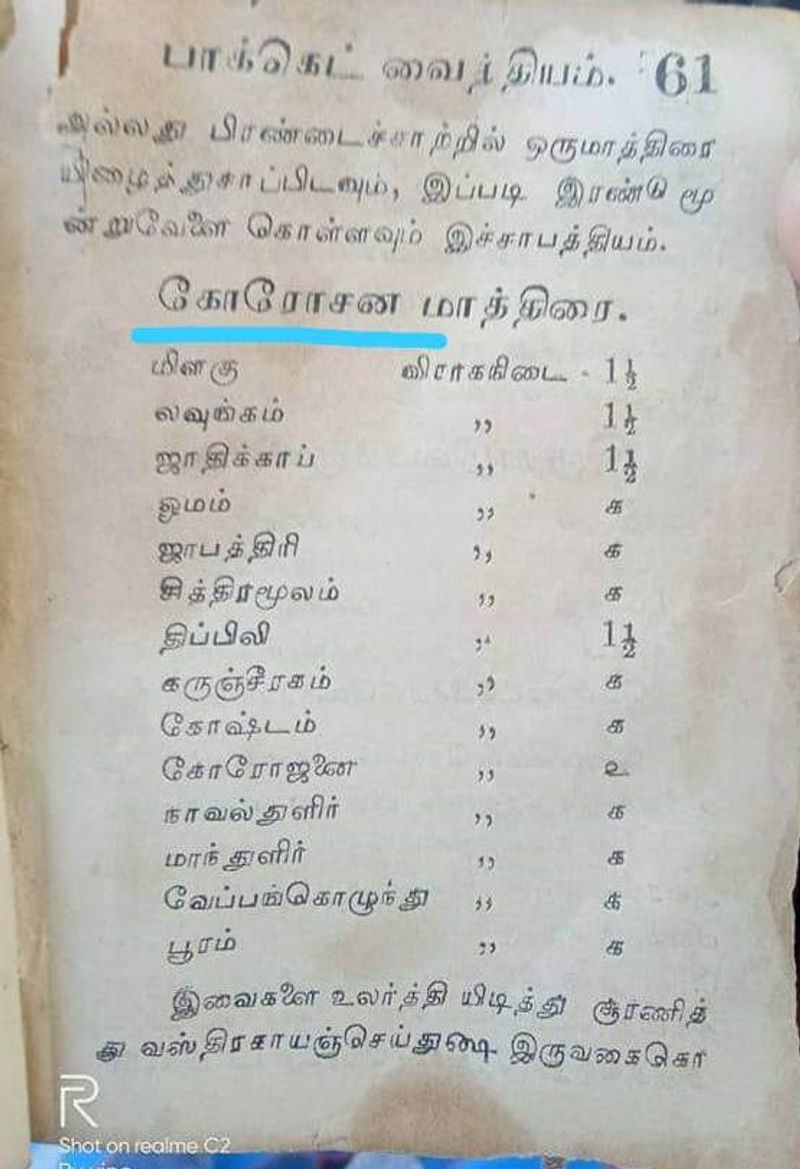 பாக்கெட் வைத்தியம். 61
அல்லது பிரண்டைச்சாற்றில் ஒருமாத்திரை
யிழைத்துசாப்பிடவும், இப்படி இரண்டு மூ
ன்றுவேளை கொள்ளவும் இச்சாபத்தியம்.
கோரோசன மாத்திரை.
மிளகு விராகநிடை - 1½
லவுங்கம் ,, 1½
ஜாதிக்காய் ,, 1½
ஓமம் ,, க
ஜாபத்திரி ,, க
சித்திரமூலம் ,, க
திப்பிலி ,, 1½
கருஞ்சீரகம் ,, க
கோஷ்டம் ,, க
கோரோஜனை ,, உ
நாவல்துளிர் ,, க
மாந்துளிர் ,, க
வேப்பங்கொழுந்து ,, க
பூரம் ,, க
இவைகளை உலர்த்தி யிடித்து சூரணித்
து வஸ்திரகாயஞ்செய்து இருவகைகொ
R
Shot on realme C2